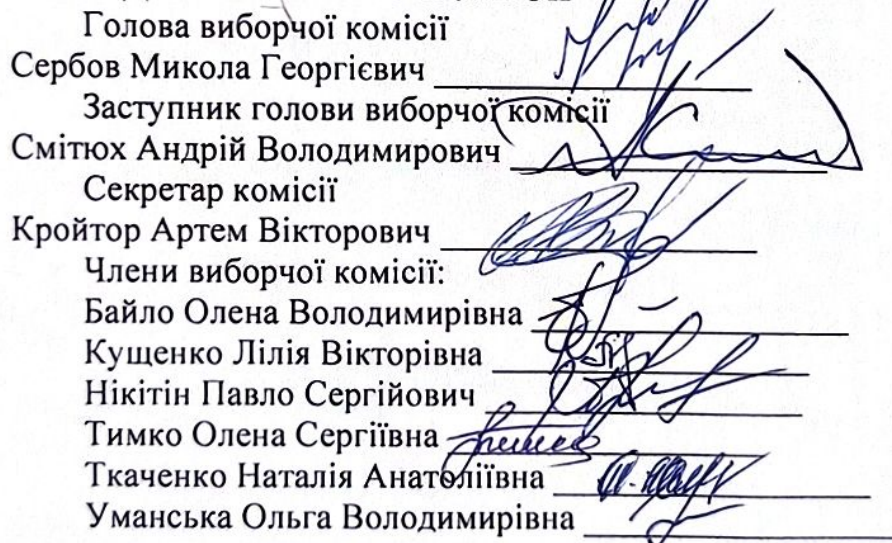 Голова виборчої комісії
Сербов Микола Георгієвич
Заступник голови виборчої комісії
Смітюх Андрій Володимирович
Секретар комісії
Кройтор Артем Вікторович
Члени виборчої комісії:
Байло Олена Володимирівна
Кущенко Лілія Вікторівна
Нікітін Павло Сергійович
Тимко Олена Сергіївна
Ткаченко Наталія Анатоліївна
Уманська Ольга Володимирівна